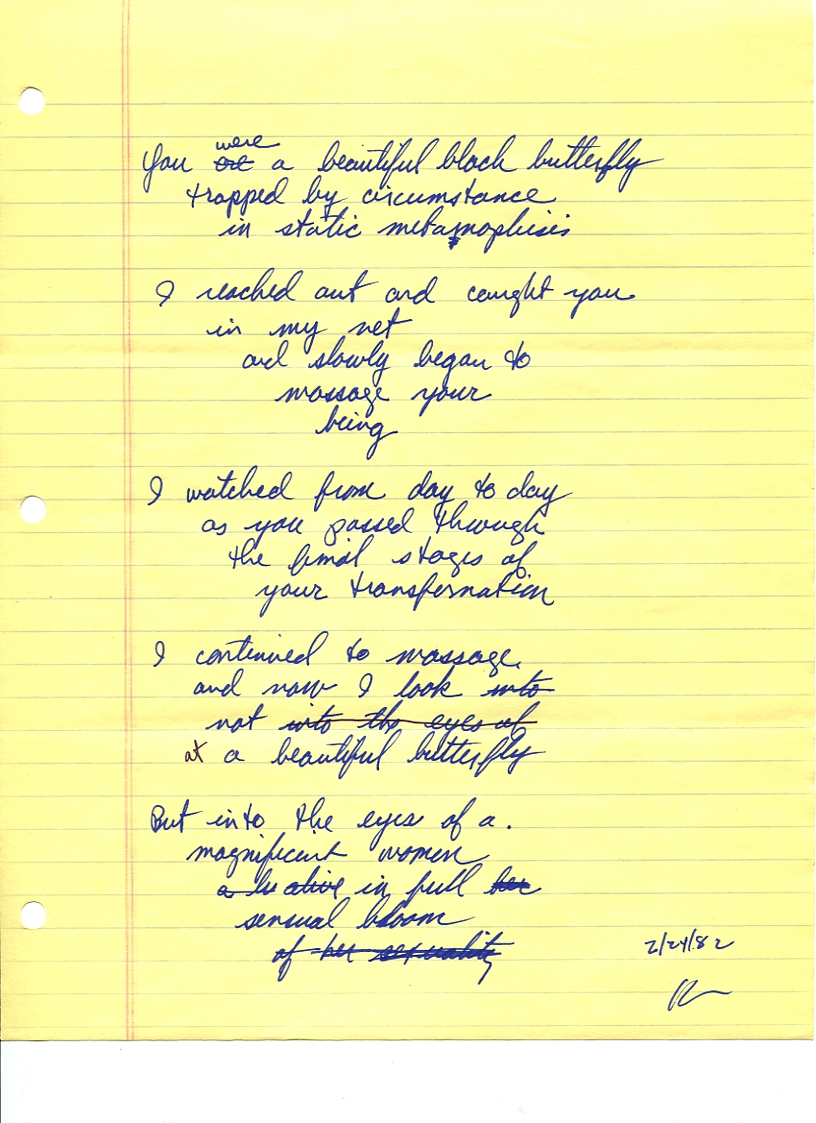 were
You are a beautiful black butterfly
trapped by circumstance
in static metamophisis
I reached out and caught you
in my net
and slowly began to
massage your
being
I watched from day to day
as you passed through
the final stages of
your transfernation
I continued to massage
and now I look into
not into the eyes of
at a beautiful butterfly
But into the eyes of a.
magnificent women
in full her
sensual bloom
of her sexuality
2/24/82